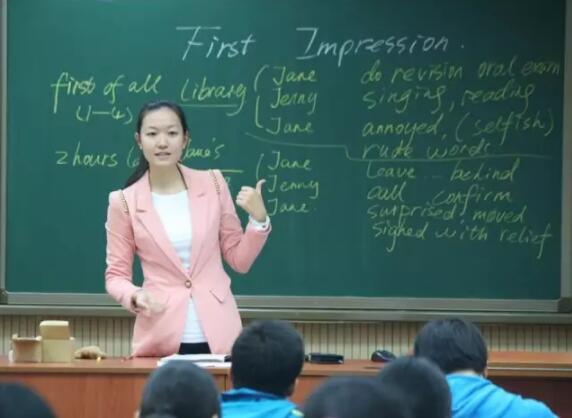 First Impression.
first of all Library Jane do revision oral exam
(1-4) Jenny singing, reading
Jane annoyed, (selfish)
rude words
2 hours Jane leave.. behind
Jenny call confirm
Jane. surprised, moved
sighed with relief